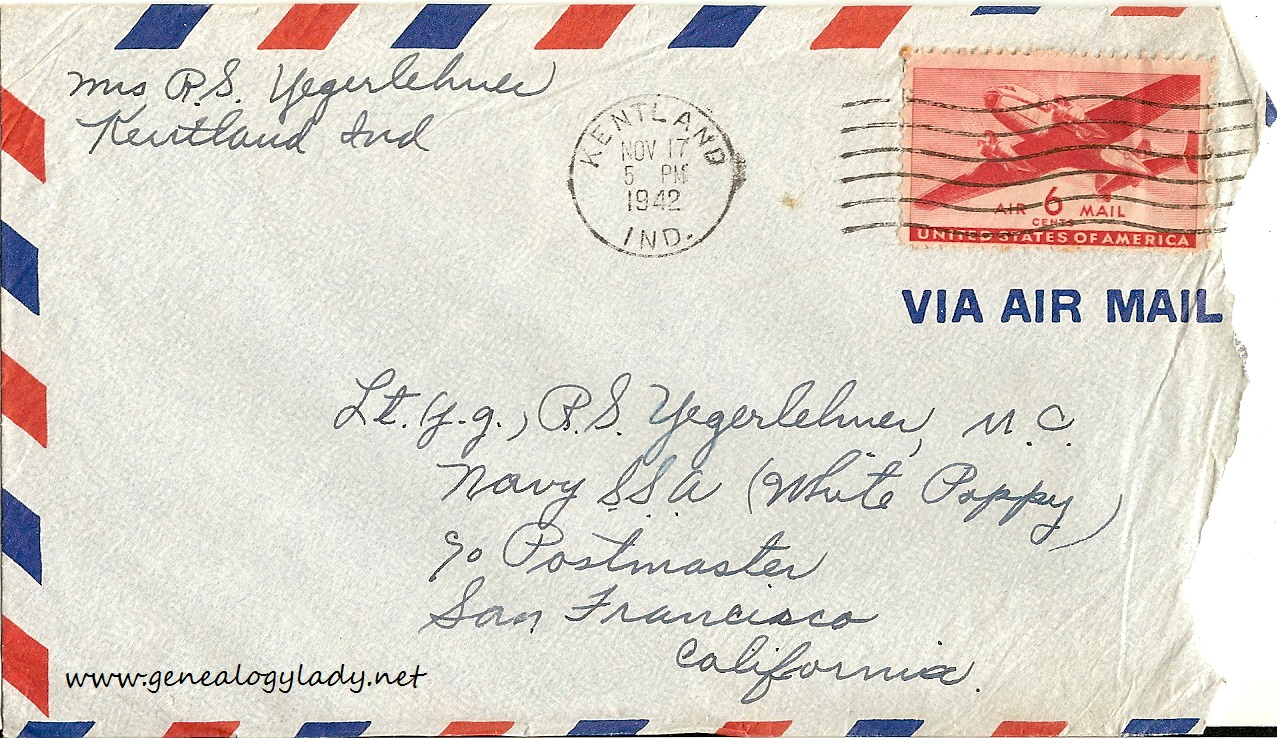 Mrs R.S. Yegerlehner
Kentland Ind
KENTLAND
NOV 17
5 PM
1942
IND.
AIR 6 MAIL
CENTS
UNITED STATES OF AMERICA
VIA AIR MAIL
Lt. (j.g.), R.S. Yegerlehner, M.C.
Navy S.S.A (White Poppy)
c/o Postmaster
San Francisco
California.
www.genealogylady.net